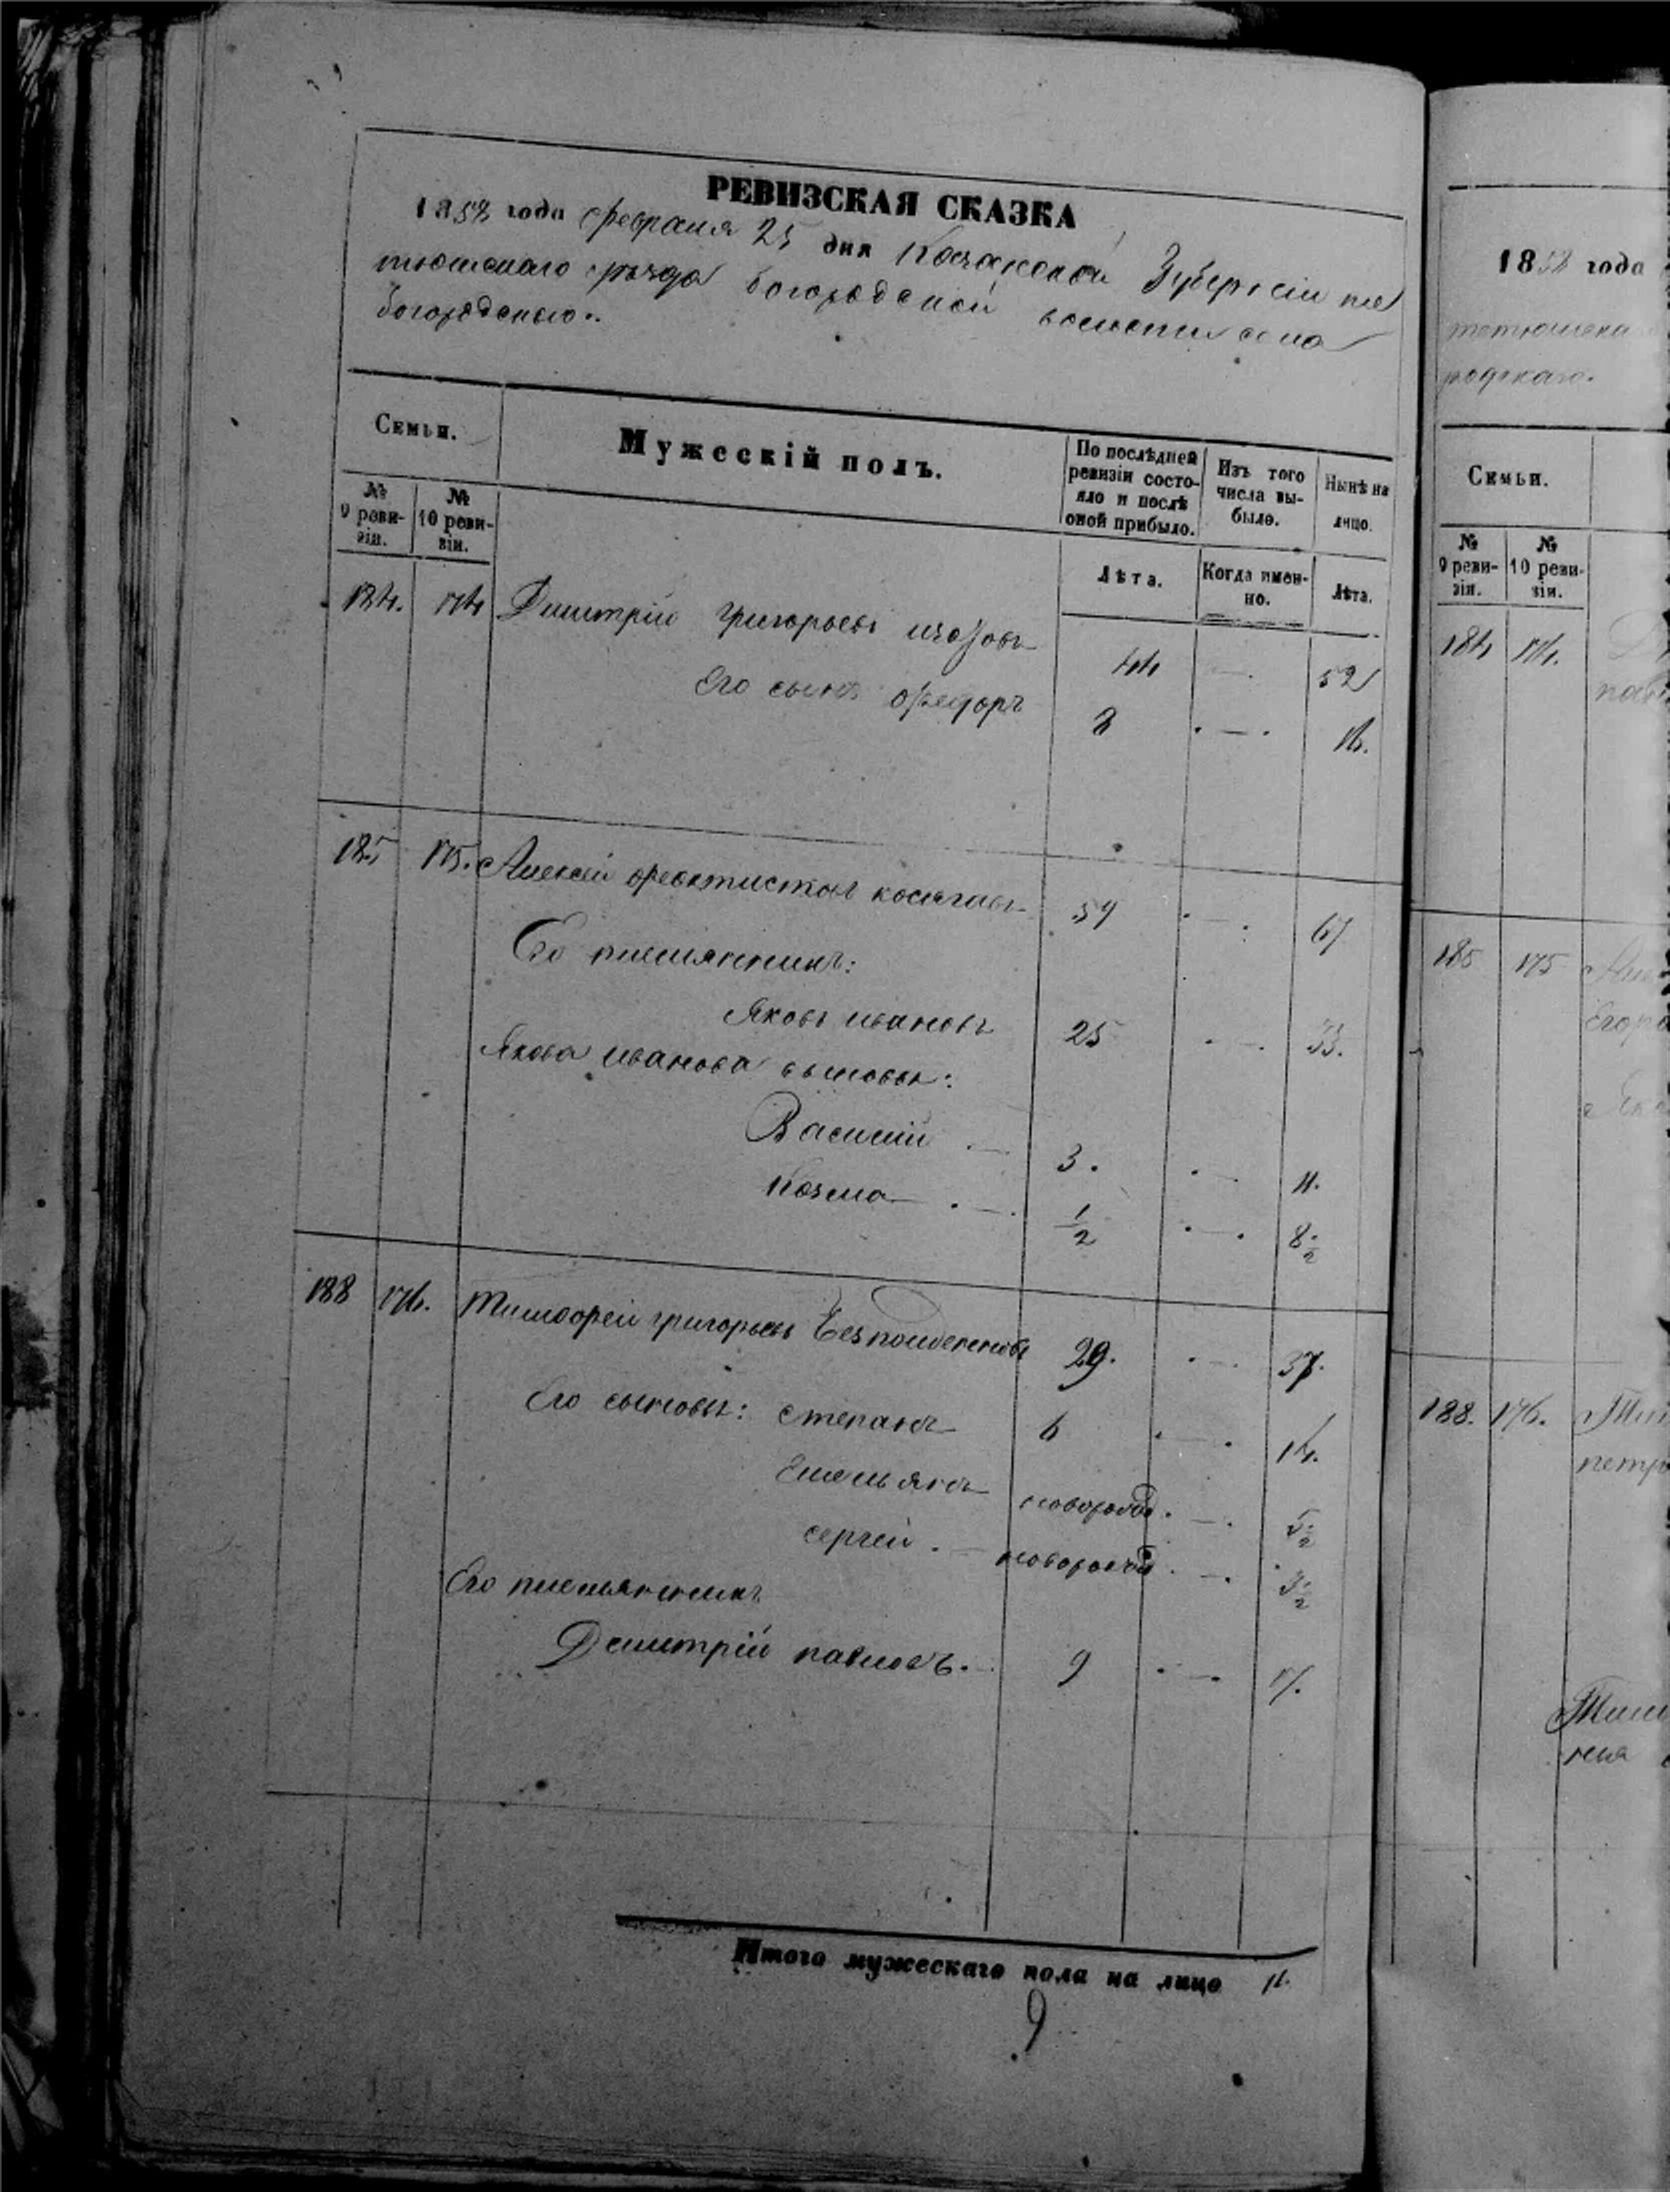 РЕВИЗСКАЯ СКАЗКА
1858 года февраля 25 дня Казанской Губернiи те
тюшскаго уѣзда Богородской волости села
Богородскаго.
Семьи.
Мужескiй полъ.
По послѣдней ревизiи состояло и послѣ оной прибыло.
Изъ того числа выбыло.
Нынѣ на лицо.
№ 9 ревизiи.
№ 10 ревизiи.
Лѣта.
Когда именно.
Лѣта.
184. 174 Димитрiй григорьевъ 44 — 52
Его сынъ федоръ 8 — 16.
185 175. Алексей феоктистовъ 59 — 67
Его племянникъ:
Яковъ ивановъ 25 — 33.
Якова иванова сыновья:
Василiй — 3. — 11.
Козма — 1/2 — 8 1/2
188 176. Тимофей григорьевъ 29. — 37.
Его сыновья: степанъ 6 — 14.
Емельянъ новорожд. — 5 1/2
сергей. — новорожд. — 3 1/2
Его племянникъ
Димитрiй павловъ. 9 — 17.
Итого мужескаго пола на лицо 11.
9
1858 года
тетюшска
родскаго.
Семьи.
№ 9 ревизiи.
№ 10 ревизiи.
184 174.
185 175
188. 176.
петр